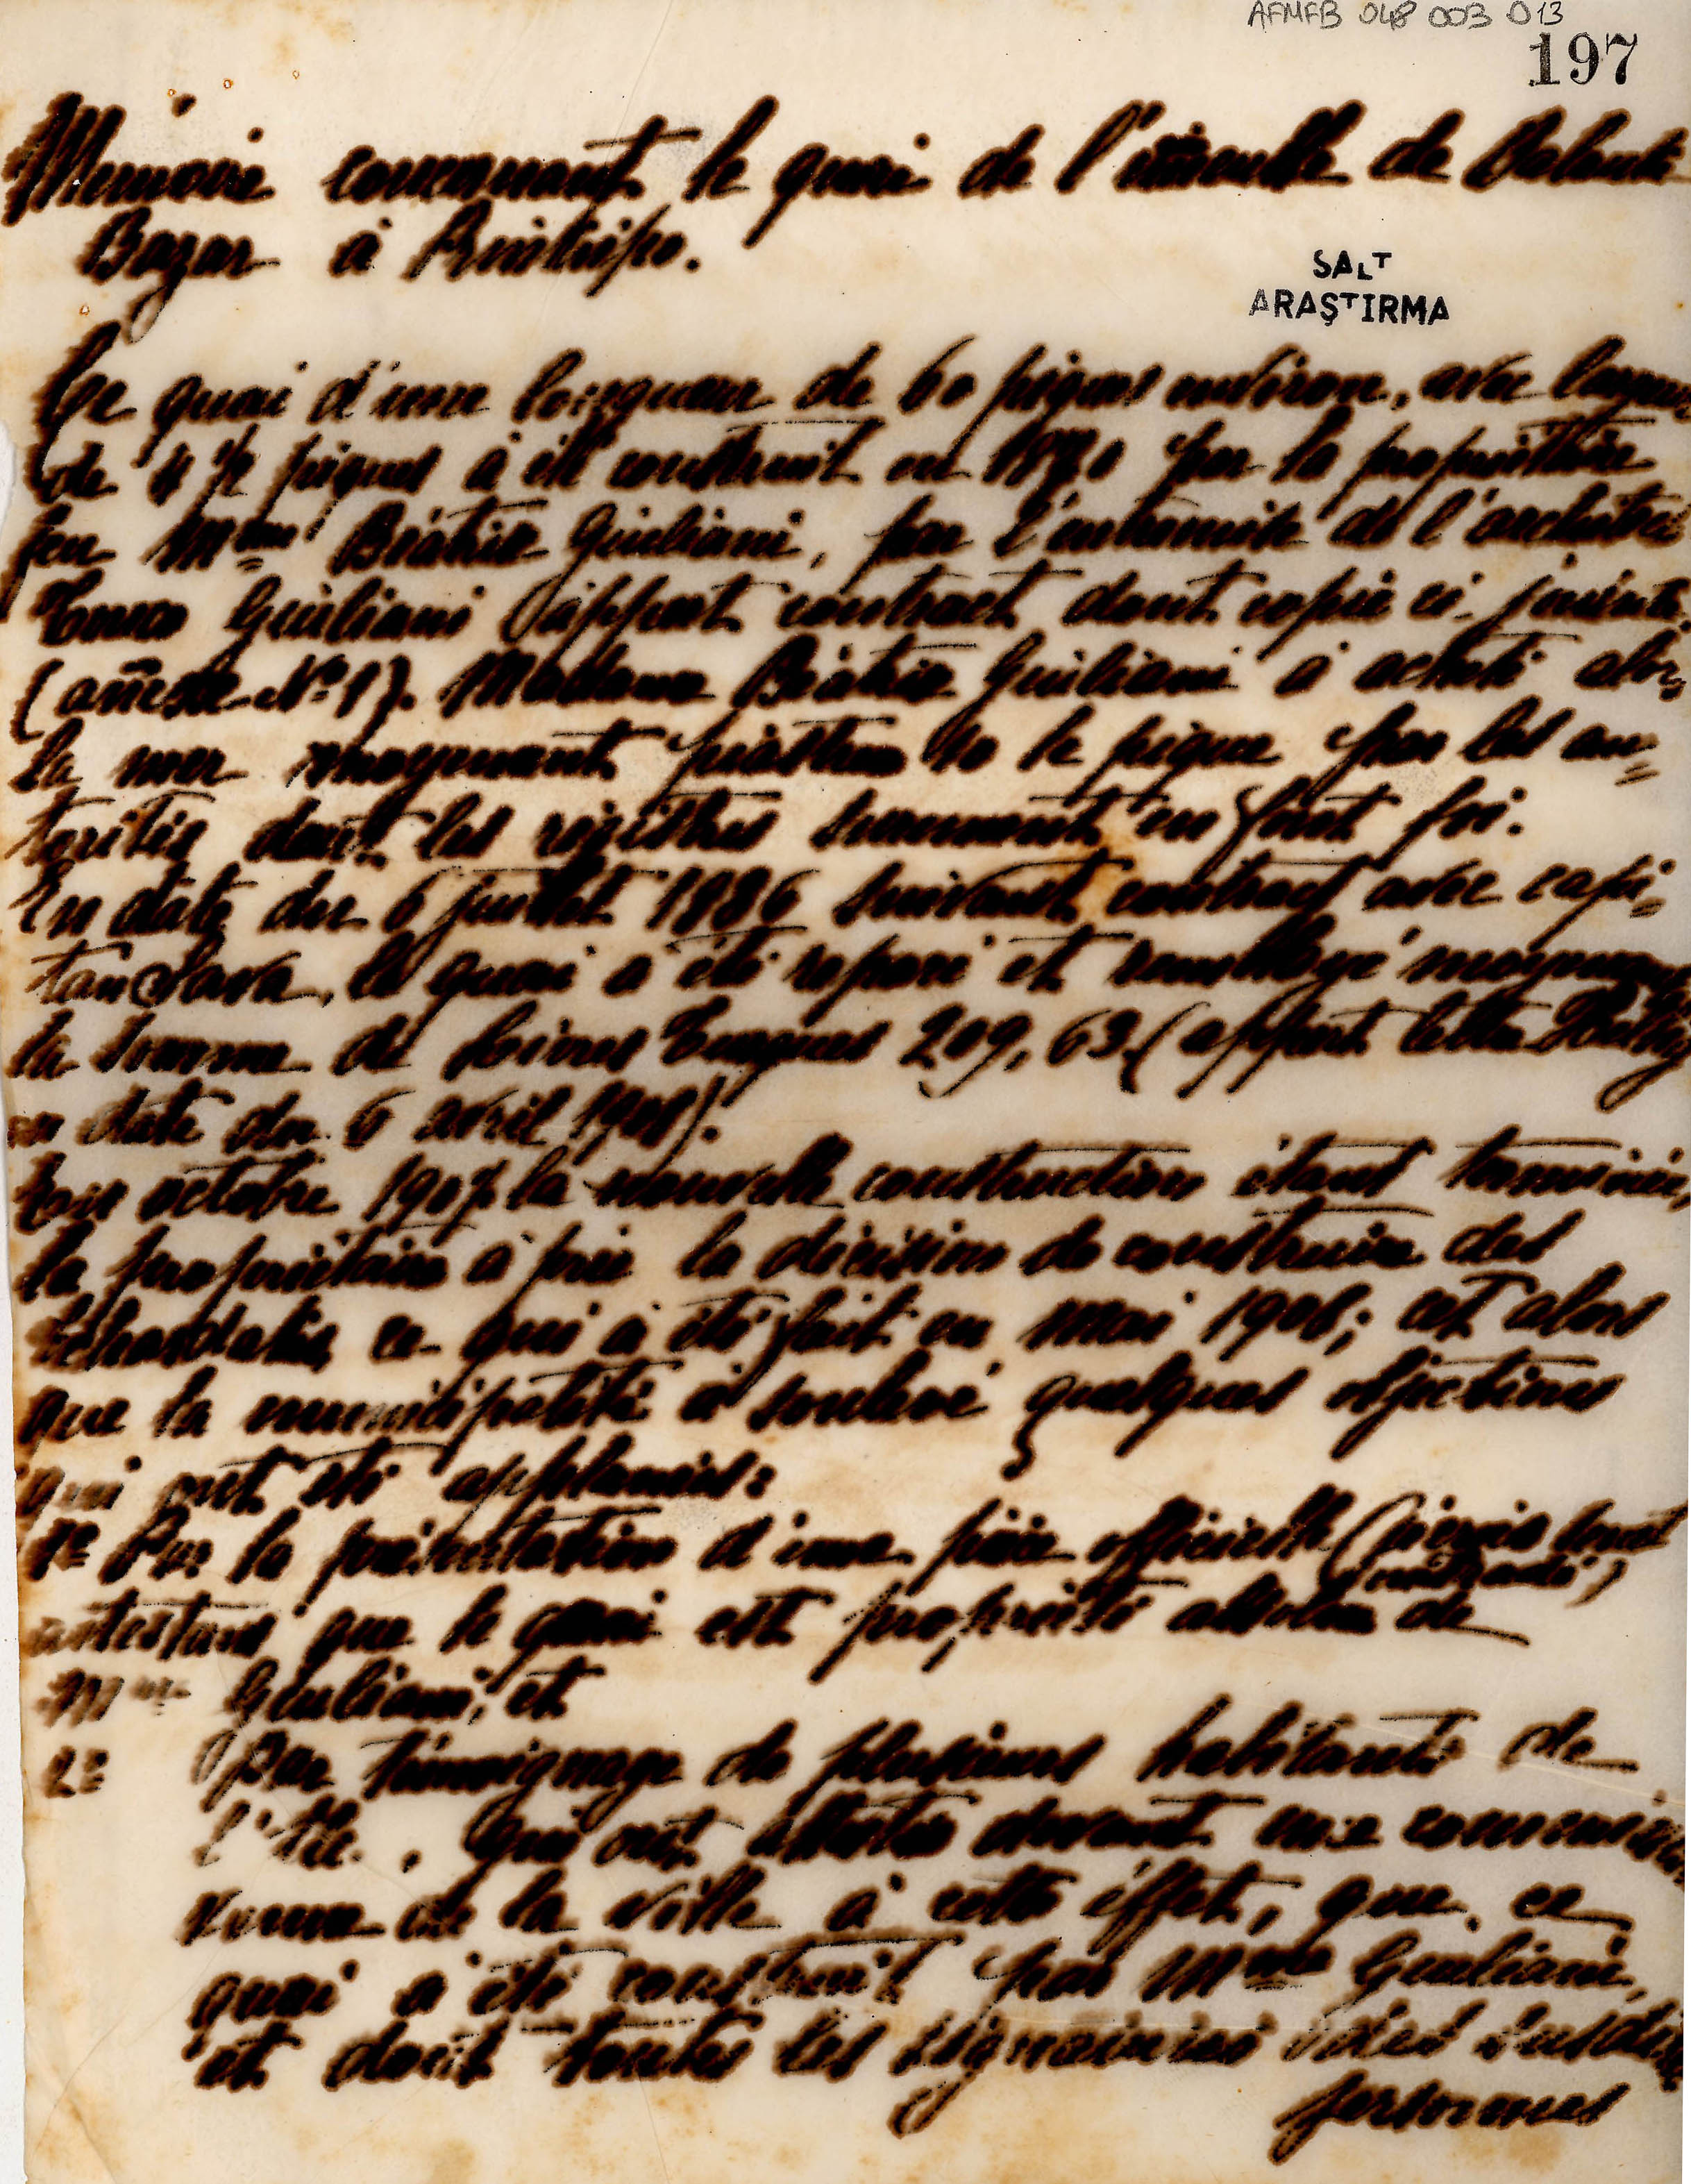 AFMFB 048 003 013
197
Memoire concernant le quai de l'immeuble de
Bazar à Prinkipo.
SALT
ARAŞTIRMA
Ce quai d'une longueur de 60 piques environ, avec largeur
de 4 ½ piques à été construit en par la propriétaire
feu Mme Béatrice Giuliani, par l'entremise de l'architecte
Giuliani appert contract dont copie ci-jointe.
(annexe No 1). Madame Béatrice Giuliani à acheté alors
la mer moyennant piastres 10 le pique par les au=
torités dont les registres surement en font foi.
En date du 6 juillet 1886 suivant contract avec capi=
tan Sava, le quai a été reparé et moyennant
la somme de Livres Turques 209,63 (appert lettre
en date du 6 avril 1908).
En octobre 1907 la nouvelle construction étant terminée,
la propriétaire à pris la décision de construire des
ce qui à été fait en mai 1908; cet alors
que la municipalité à soulevé quelques objections
qui ont été applanies:
1e Par la présentation d'une pièce officielle (
attestant que le quai est propriété absolue de
Mme Giuliani, et
2e Par témoignage de plusieurs habitants de
l'Ile, qui ont attesté devant une commission
venue de la ville à cette éffet, que ce
quai a été construit par Mme Giuliani,
et dont toutes les signatures des susdites
personnes